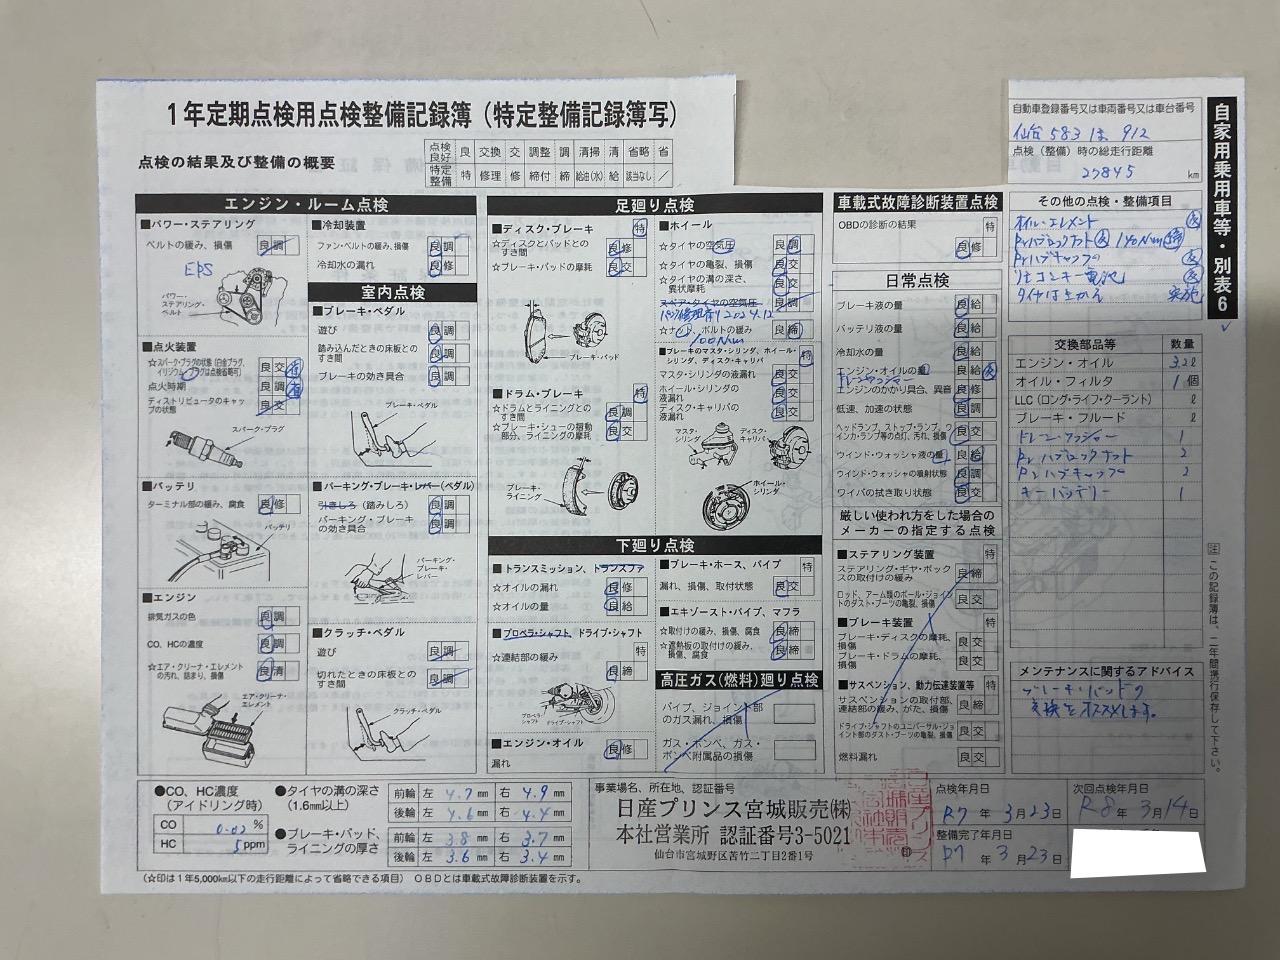 1年定期点検用点検整備記録簿（特定整備記録簿写）
点検の結果及び整備の概要
点検 良好 良 交換 交 調整 調 清掃 清 省略 省
特定 整備 特 修理 修 締付 締 給油(水) 給 該当なし ／
自動車登録番号又は車両番号又は車台番号
仙台 583 は 912
点検（整備）時の総走行距離
27845 km
自家用乗用車等・別表6
エンジン・ルーム点検
■パワー・ステアリング
ベルトの緩み、損傷 良 調
EPS
パワー・ステアリング・ベルト
■点火装置
☆スパーク・プラグの状態（白金プラグ、イリジウム・プラグは点検省略可） 良 交 省
点火時期 良 調 省
ディストリビュータのキャップの状態 良 交
スパーク・プラグ
■バッテリ
ターミナル部の緩み、腐食 良 修
バッテリ
■エンジン
排気ガスの色 良 調
CO、HCの濃度 良 調
☆エア・クリーナ・エレメントの汚れ、詰まり、損傷 良 清
エア・クリーナ・エレメント
■冷却装置
ファン・ベルトの緩み、損傷 良 調
冷却水の漏れ 良 修
室内点検
■ブレーキ・ペダル
遊び 良 調
踏み込んだときの床板とのすき間 良 調
ブレーキの効き具合 良 調
ブレーキ・ペダル
■パーキング・ブレーキ・レバー(ペダル)
引きしろ（踏みしろ） 良 調
パーキング・ブレーキの効き具合 良 調
パーキング・ブレーキ・レバー
■クラッチ・ペダル
遊び 良 調
切れたときの床板とのすき間 良 調
クラッチ・ペダル
足廻り点検
■ディスク・ブレーキ 特
☆ディスクとパッドとのすき間 良 修
☆ブレーキ・パッドの摩耗 良 交
ブレーキ・パッド
■ドラム・ブレーキ 特
☆ドラムとライニングとのすき間 良 調
☆ブレーキ・シューの摺動部分、ライニングの摩耗 良 交
ブレーキ・ライニング
■ホイール
☆タイヤの空気圧 良 調
☆タイヤの亀裂、損傷 良 交
☆タイヤの溝の深さ、異状摩耗 良 交
スペア・タイヤの空気圧 良 調
パンク修理剤 2024.12
☆ナット、ボルトの緩み 良 締
100Nm
■ブレーキのマスタ・シリンダ、ホイール・シリンダ、ディスク・キャリパ 特
マスタ・シリンダの液漏れ 良 交
ホイール・シリンダの液漏れ 良 交
ディスク・キャリパの液漏れ 良 交
マスタ・シリンダ
ディスク・キャリパ
ホイール・シリンダ
下廻り点検
■トランスミッション、トランスファ
☆オイルの漏れ 良 修
☆オイルの量 良 給
■プロペラ・シャフト、ドライブ・シャフト 特
☆連結部の緩み 良 締
プロペラ・シャフト
ドライブ・シャフト
■エンジン・オイル
漏れ 良 修
■ブレーキ・ホース、パイプ 特
漏れ、損傷、取付状態 良 交
■エキゾースト・パイプ、マフラ
☆取付けの緩み、損傷、腐食 良 締
☆遮熱板の取付けの緩み、損傷、腐食 良 締
高圧ガス（燃料）廻り点検
パイプ、ジョイント部のガス漏れ、損傷
ガス・ボンベ、ガス・ボンベ附属品の損傷
車載式故障診断装置点検
OBDの診断の結果
良 修
日常点検
ブレーキ液の量 良 給
バッテリ液の量 良 給
冷却水の量 良 給
エンジン・オイルの量 良 給 交
ドレンワッシャー
エンジンのかかり具合、異音 良 修
低速、加速の状態 良 調
ヘッドランプ、ストップ・ランプ、ウインカ・ランプ等の点灯、汚れ、損傷 良 交
ウインド・ウォッシャ液の量 良 給
ウインド・ウォッシャの噴射状態 良 調
ワイパの拭き取り状態 良 交
厳しい使われ方をした場合のメーカーの指定する点検
■ステアリング装置 特
ステアリング・ギヤ・ボックスの取付けの緩み 良 締
ロッド、アーム類のボール・ジョイントのダスト・ブーツの亀裂、損傷 良 交
■ブレーキ装置 特
ブレーキ・ディスクの摩耗、損傷 良 交
ブレーキ・ドラムの摩耗、損傷 良 交
■サスペンション、動力伝達装置等 特
サスペンションの取付部、連結部の緩み、がた、損傷 良 締
ドライブ・シャフトのユニバーサル・ジョイント部のダスト・ブーツの亀裂、損傷 良 交
燃料漏れ 良 交
その他の点検・整備項目
オイル・エレメント 交
Rrハブロックナット 交 140Nm 締
Rrハブキャップ 交
リモコンキー電池 交
タイヤはきかえ 実施
交換部品等 数量
エンジン・オイル 3.2ℓ
オイル・フィルタ 1個
LLC（ロング・ライフ・クーラント） ℓ
ブレーキ・フルード ℓ
ドレーンワッシャー 1
Rrハブロックナット 2
Rrハブキャップ 2
キーバッテリー 1
メンテナンスに関するアドバイス
ブレーキ・パッドの
交換をオススメします。
注 この記録簿は、二年間携行保存して下さい。
●CO、HC濃度（アイドリング時）
CO 0.02 %
HC 5 ppm
●タイヤの溝の深さ（1.6mm以上）
前輪 左 4.7 mm 右 4.9 mm
後輪 左 4.6 mm 右 4.4 mm
●ブレーキ・パッド、ライニングの厚さ
前輪 左 3.8 mm 右 3.7 mm
後輪 左 3.6 mm 右 3.4 mm
事業場名、所在地、認証番号
日産プリンス宮城販売(株)
本社営業所 認証番号3-5021
仙台市宮城野区苦竹二丁目2番1号
印
点検年月日
R7 年 3月23日
整備完了年月日
R7 年 3月23日
次回点検年月日
R8 年 3月14日
（☆印は1年5,000km以下の走行距離によって省略できる項目） OBDとは車載式故障診断装置を示す。